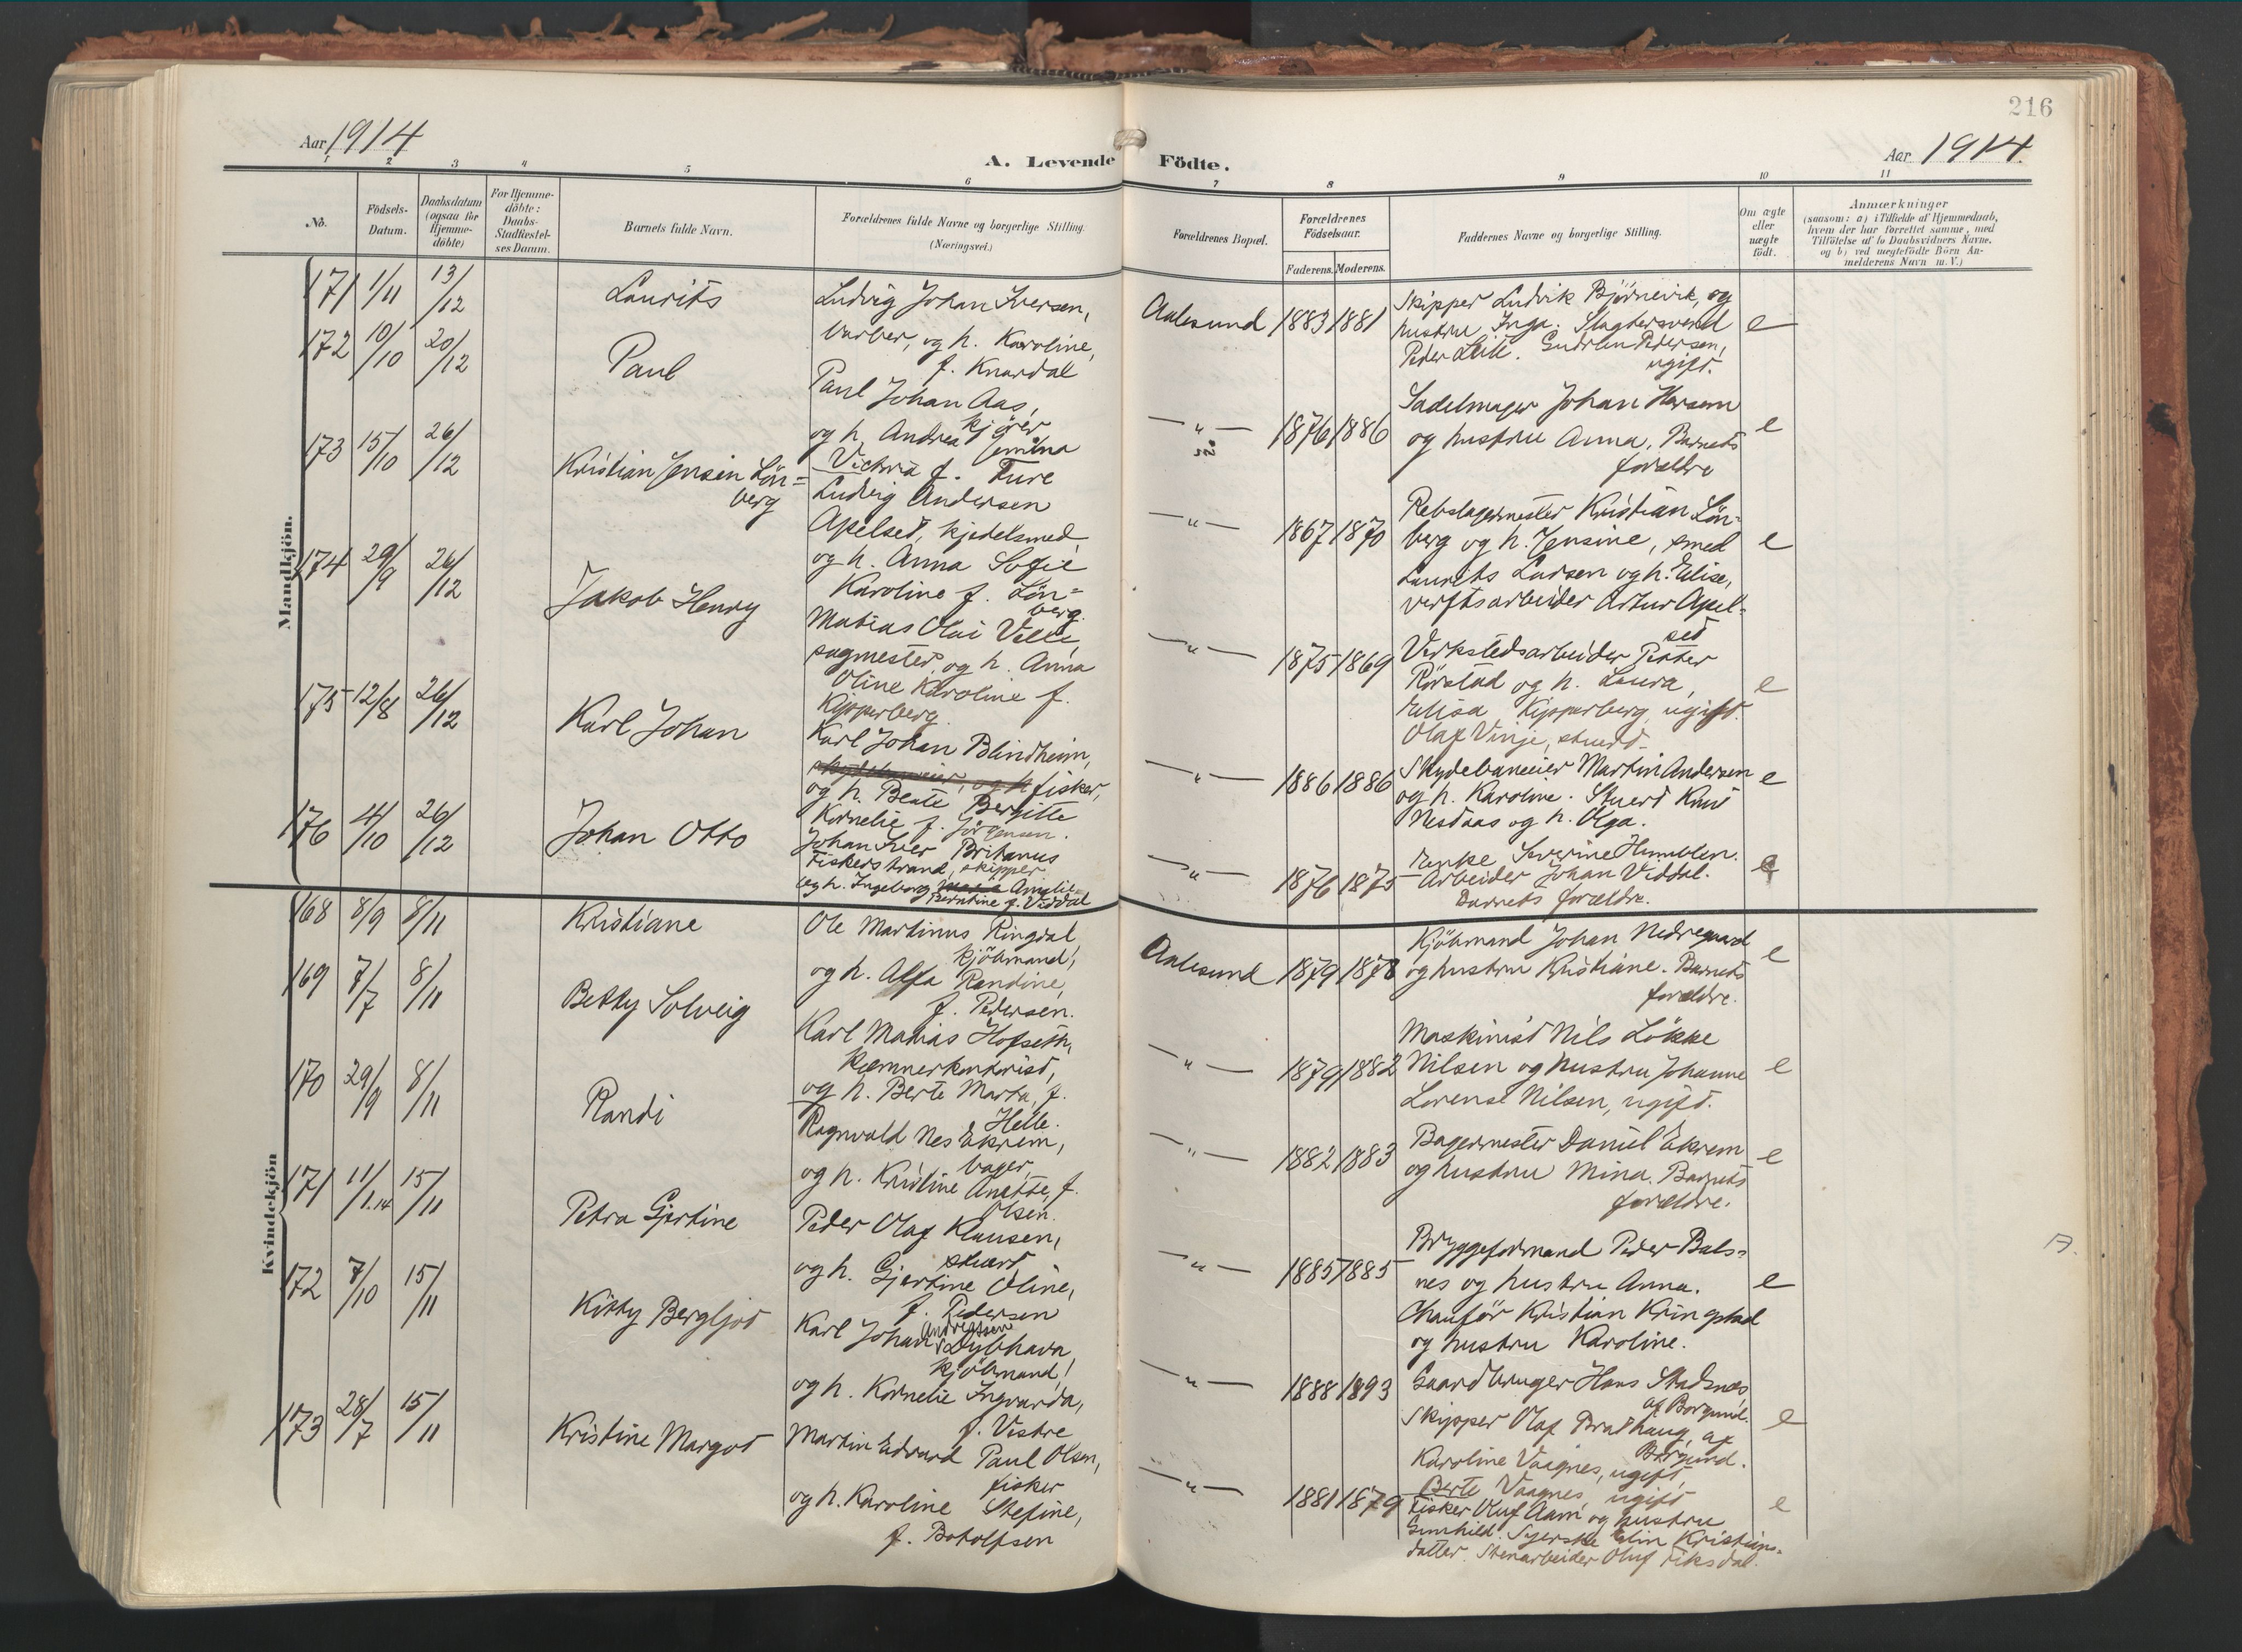 216
Aar 1914
A. Levende Födte.
Aar 1914
1 2 3 4 5 6 7 8 9 10 11
No.
Födsels-
Datum.
Daabsdatum
(ogsaa for
Hjemme-
döbte)
For Hjemme-
döbte:
Daabs-
Stadfæstel-
ses Datum.
Barnets fulde Navn.
Forældrenes fulde Navne og borgerlige Stilling.
(Næringsvei.)
Forældrenes Bopæl.
Forældrenes
Födselsaar.
Faderens. Moderens.
Faddernes Navne og borgerlige Stilling.
Om ægte
eller
uægte
födt.
Anmærkninger
(saasom: a) i Tilfælde af Hjemmedaab,
hvem der har forrettet samme, med
Tilföielse af to Daabsvidners Navne,
og b) ved uægtefödte Börn An-
melderens Navn m.V.)
Mandkjön.
171 1/11 13/12
Laurits
Ludvig Johan Iversen,
barber, og h. Karoline,
f. Knardal
Aalesund 1883 1881
Skipper Ludvik Björnevik, og
hustru Inga. Slagtersvend
Peder Leite. Gudrun Pedersen,
ugift.
e
172 10/10 20/12
Paul
Paul Johan Aas,
kjörer
og h. Andrea Jemina
Victoria f. Ture
— " — 1876 1886
Sadelmager Johan Hansen
og hustru Anna. Barnets
forældre
e
173 15/10 26/12
Kristian Jensen Lön=
berg
Ludvig Andersen
Apelset, kjedelsmed
og h. Anna Sofie
Karoline f. Lön=
berg.
— " — 1867 1870
Rebslagermester Kristian Lön=
berg og h. Jensine, smed
Laurits Larsen og h. Elise,
verftsarbeider Artur Apel=
set
e
174 29/9 26/12
Jakob Henry
Matias Olai Velle,
sagmester og h. Anna
Oline Karoline f.
Kipperberg.
— " — 1875 1869
Verkstedsarbeider Petter
Rörstad og h. Laura,
Elisa Kipperberg, ugift.
Olaf Vinje, stuert.
e
175 12/8 26/12
Karl Johan
Karl Johan Blindheim,
fisker,
og h. Beate Bergitte
Kornelie f. Jörgensen.
— " — 1886 1886
Skydebaneeier Martin Andersen
og h. Karoline. Stuert Knut
Nesdaas og h. Olga.
e
176 4/10 26/12
Johan Otto
Johan Iver Britanus
Fiskerstrand, skipper
og h. Ingeborg Amalie
Berntine f. Viddal
— " — 1876 1875
Enke Severine Humblen.
Arbeider Johan Viddal.
Barnets forældre.
e
Kvindekjön
168 8/9 8/11
Kristiane
Ole Martinus Ringdal,
kjöbmand,
og h. Alfa Randine,
f. Pedersen.
Aalesund 1879 1878
Kjöbmand Johan Nedregaard
og hustru Kristiane. Barnets
forældre.
e
169 7/7 8/11
Betty Solveig
Karl Matias Hofseth,
kæmnerkontorist,
og h. Berte Marta, f.
Helle.
— " — 1879 1882
Maskinist Nils Lökke
Nilsen og hustru Johanne
Lorense Nilsen, ugift.
e
170 29/9 8/11
Randi
Ragnvald Nes Ekrem,
bager,
og h. Kristine Anette, f.
Olsen.
— " — 1882 1883
Bagermester Daniel Ekrem
og hustru Mina. Barnets
forældre.
e
171 11/1.14 15/11
Petra Gjertine
Peder Olaf Klausen,
stuert
og h. Gjertine Oline,
f. Pedersen
— " — 1885 1885
Bryggeformand Peder Bals=
nes og hustru Anna.
Chauför Kristian Kringstad
og hustru Karoline.
e
172 7/10 15/11
Kitty Bergljot
Karl Johan Andreassen
Dybhavn
kjöbmand,
og h. Kornelie Ingvarda,
f. Vestre
— " — 1888 1893
Gaardbruger Hans Stadsnes,
af Borgund.
Skipper Olaf Brathaug, af
Borgund.
Karoline Vaagnes, ugift,
Berte Vaagnes, ugift
e
173 28/7 15/11
Kristine Margot
Martin Edvard Paul Olsen,
fisker
og h. Karoline Stefine,
f. Botolfsen
— " — 1881 1879
Fisker Oluf Aam og hustru
Gunhild. Syerske Elin Kristians=
datter. Stenarbeider Oluf Fiksdal.
e